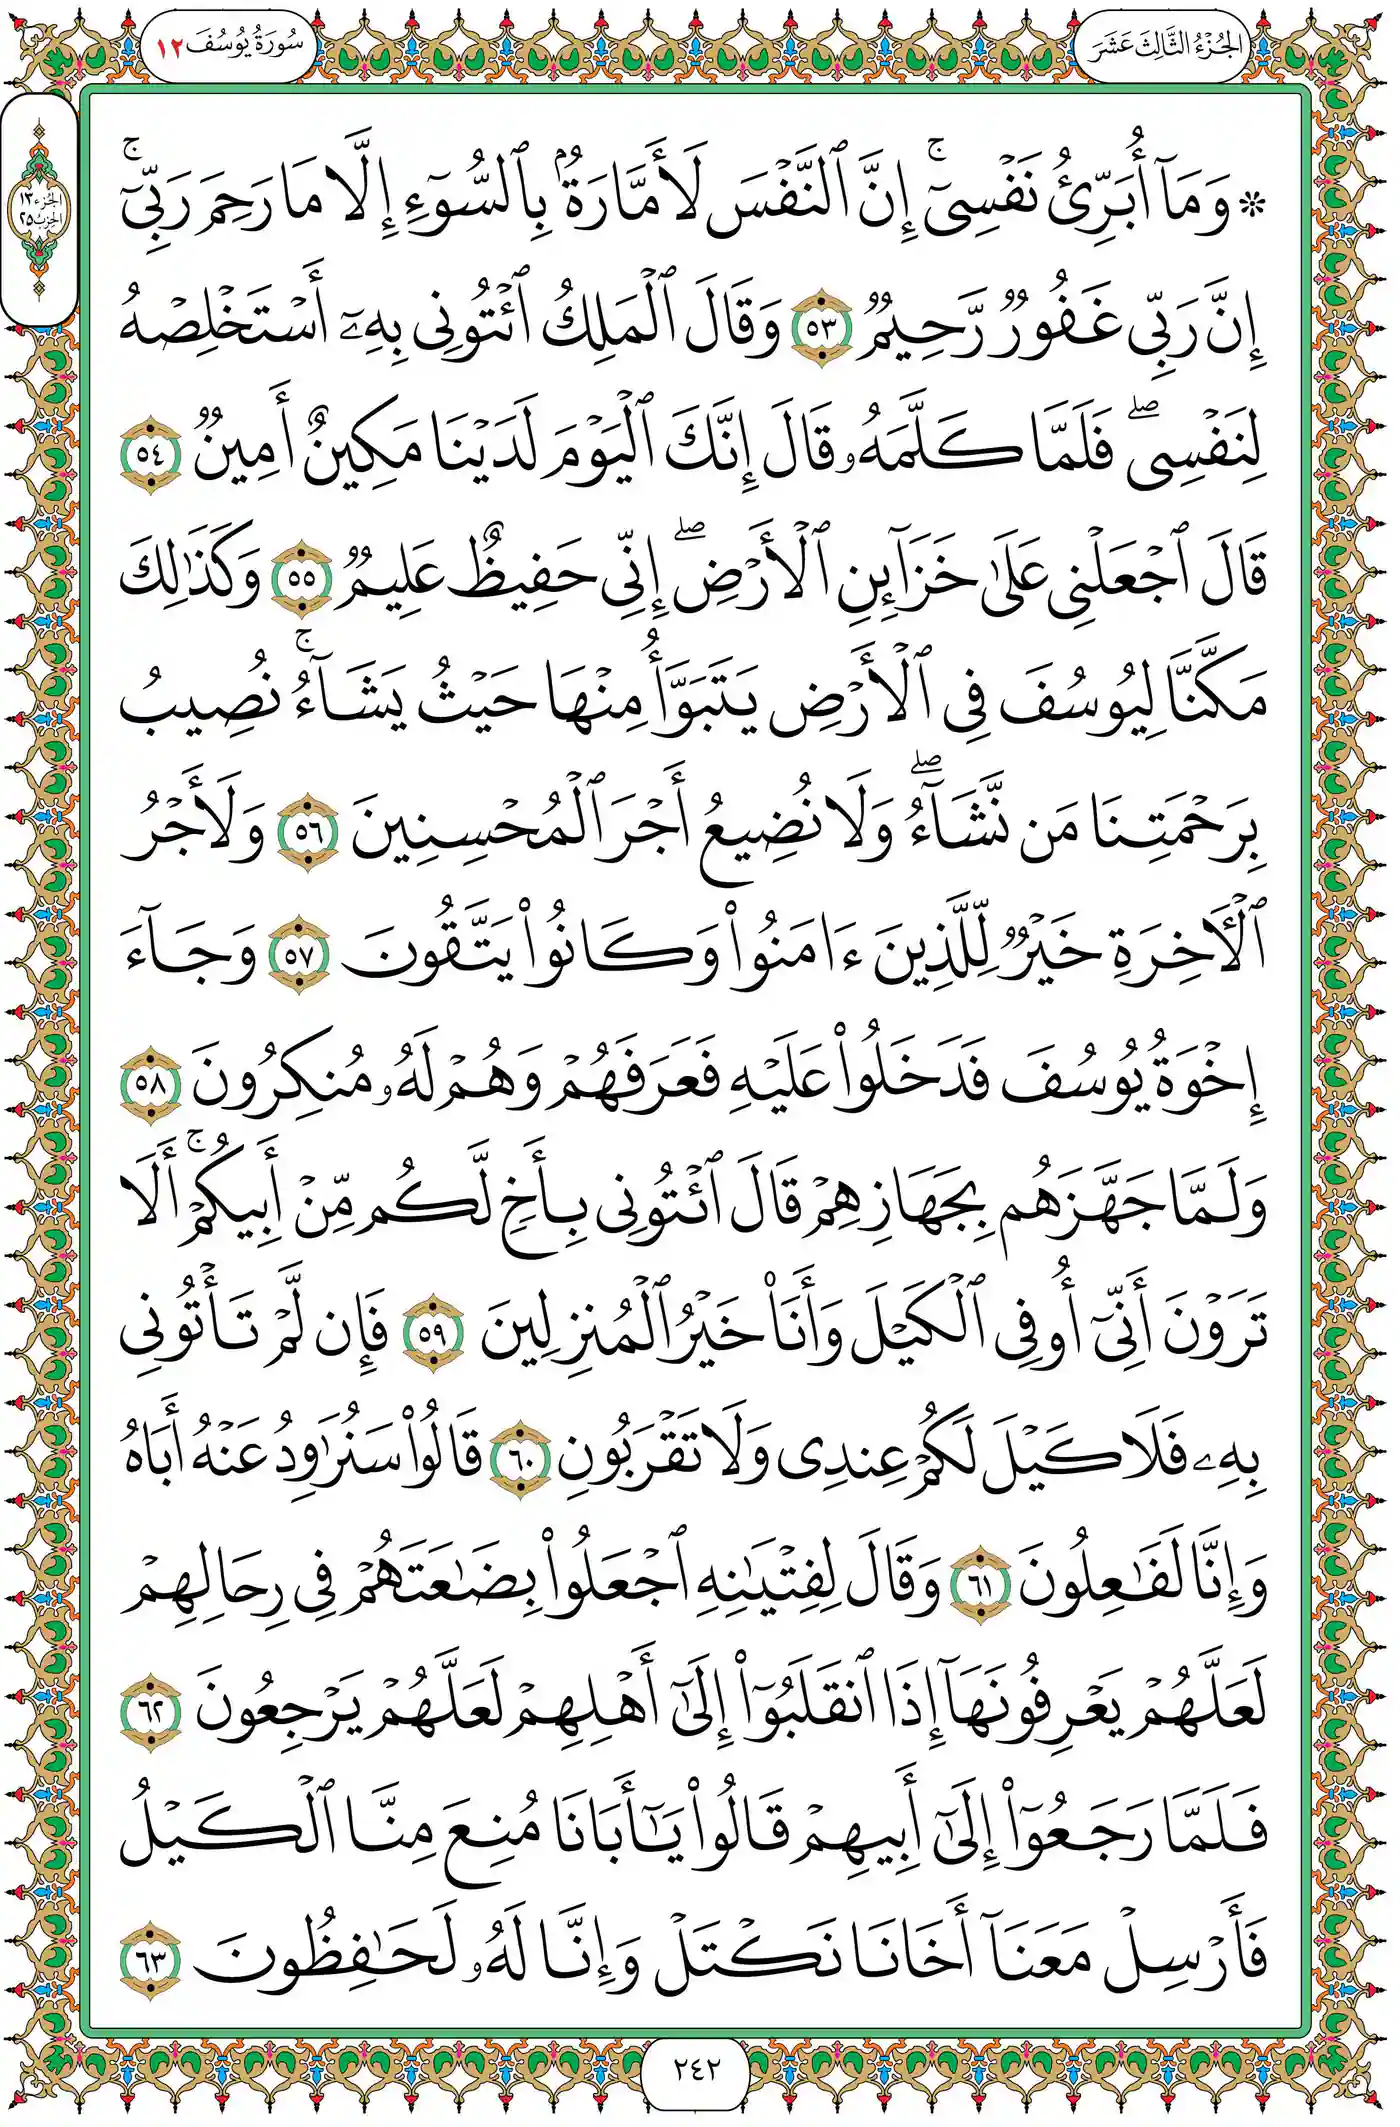 سُورَةُ يُوسُفَ ١٢
الجُزْءُ الثَّالِثَ عَشَرَ
الجزء ١٣
الحزب ٢٥
۞ وَمَآ أُبَرِّئُ نَفْسِيٓۚ إِنَّ ٱلنَّفْسَ لَأَمَّارَةُۢ بِٱلسُّوٓءِ إِلَّا مَا رَحِمَ رَبِّيٓۚ
إِنَّ رَبِّي غَفُورٞ رَّحِيمٞ ٥٣ وَقَالَ ٱلْمَلِكُ ٱئْتُونِي بِهِۦٓ أَسْتَخْلِصْهُ
لِنَفْسِيۖ فَلَمَّا كَلَّمَهُۥ قَالَ إِنَّكَ ٱلْيَوْمَ لَدَيْنَا مَكِينٌ أَمِينٞ ٥٤
قَالَ ٱجْعَلْنِي عَلَىٰ خَزَآئِنِ ٱلْأَرْضِۖ إِنِّي حَفِيظٌ عَلِيمٞ ٥٥ وَكَذَٰلِكَ
مَكَّنَّا لِيُوسُفَ فِي ٱلْأَرْضِ يَتَبَوَّأُ مِنْهَا حَيْثُ يَشَآءُۚ نُصِيبُ
بِرَحْمَتِنَا مَن نَّشَآءُۖ وَلَا نُضِيعُ أَجْرَ ٱلْمُحْسِنِينَ ٥٦ وَلَأَجْرُ
ٱلْأٓخِرَةِ خَيْرٞ لِّلَّذِينَ ءَامَنُوا۟ وَكَانُوا۟ يَتَّقُونَ ٥٧ وَجَآءَ
إِخْوَةُ يُوسُفَ فَدَخَلُوا۟ عَلَيْهِ فَعَرَفَهُمْ وَهُمْ لَهُۥ مُنكِرُونَ ٥٨
وَلَمَّا جَهَّزَهُم بِجَهَازِهِمْ قَالَ ٱئْتُونِي بِأَخٖ لَّكُم مِّنْ أَبِيكُمْۚ أَلَا
تَرَوْنَ أَنِّيٓ أُوفِي ٱلْكَيْلَ وَأَنَا۠ خَيْرُ ٱلْمُنزِلِينَ ٥٩ فَإِن لَّمْ تَأْتُونِي
بِهِۦ فَلَا كَيْلَ لَكُمْ عِندِي وَلَا تَقْرَبُونِ ٦٠ قَالُوا۟ سَنُرَٰوِدُ عَنْهُ أَبَاهُ
وَإِنَّا لَفَٰعِلُونَ ٦١ وَقَالَ لِفِتْيَٰنِهِ ٱجْعَلُوا۟ بِضَٰعَتَهُمْ فِي رِحَالِهِمْ
لَعَلَّهُمْ يَعْرِفُونَهَآ إِذَا ٱنقَلَبُوٓا۟ إِلَىٰٓ أَهْلِهِمْ لَعَلَّهُمْ يَرْجِعُونَ ٦٢
فَلَمَّا رَجَعُوٓا۟ إِلَىٰٓ أَبِيهِمْ قَالُوا۟ يَٰٓأَبَانَا مُنِعَ مِنَّا ٱلْكَيْلُ
فَأَرْسِلْ مَعَنَآ أَخَانَا نَكْتَلْ وَإِنَّا لَهُۥ لَحَٰفِظُونَ ٦٣
٢٤٢